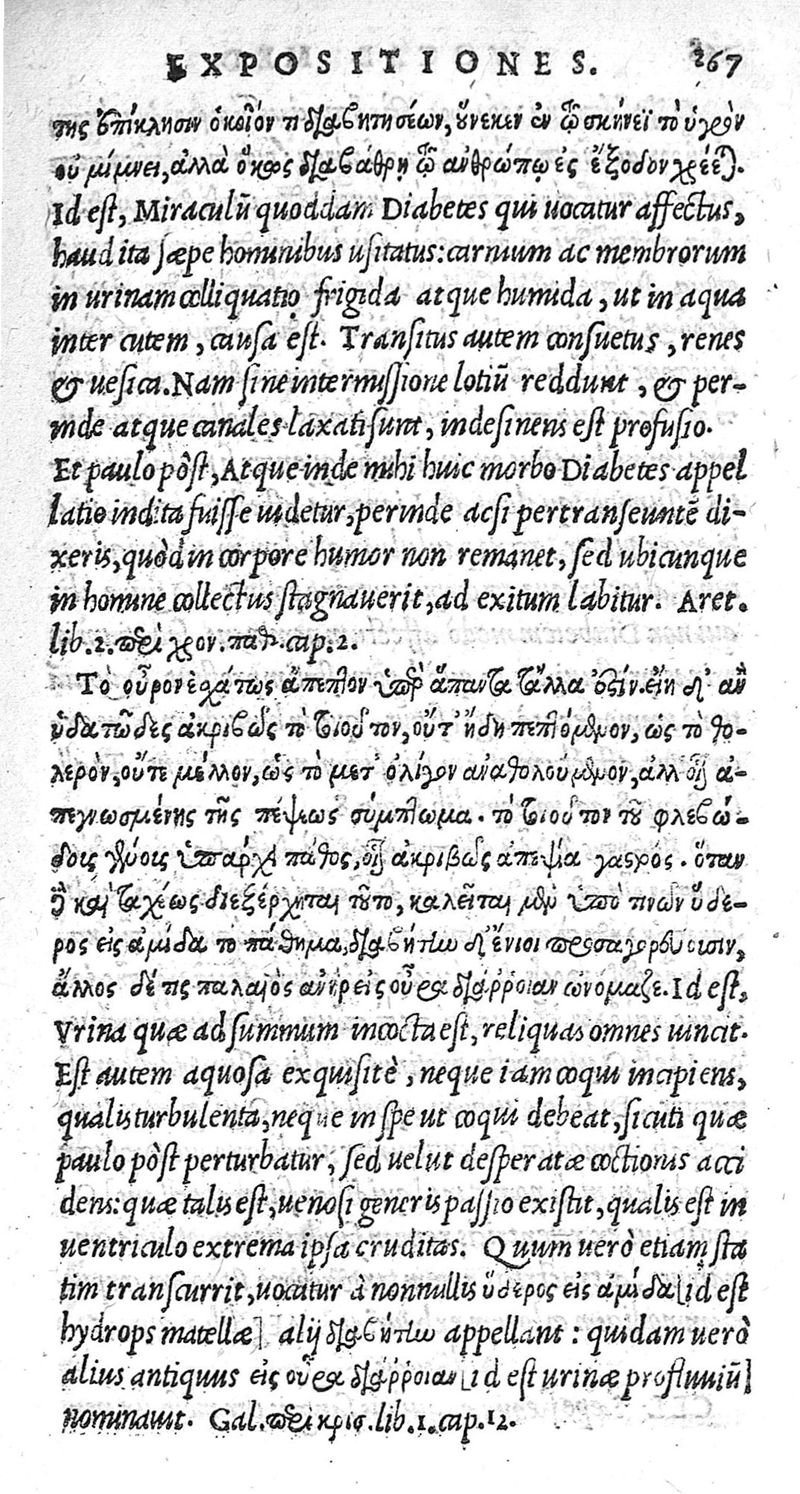 EXPOSITIONES. 267
της ἐπίκλησιν ὁκοῖόν τι διαβητησέων, οὕνεκεν ἐν τῷ σκήνεϊ τὸ ὑγρὸν
οὐ μίμνει, ἀλλὰ ὅκως διαβάθρῃ τῷ ἀνθρώπῳ ἐς ἔξοδον χρέε).
Id eſt, Miraculū quoddam Diabetes qui uocatur affectus,
haud ita ſæpe hominibus uſitatus: carnium ac membrorum
in urinam colliquatio frigida atque humida, ut in aqua
inter cutem, cauſa eſt. Tranſitus autem conſuetus, renes
& ueſica. Nam ſine intermiſſione lotiū reddunt, & per-
inde atque canales laxati ſunt, indeſinens eſt profuſio.
Et paulo pòſt, Atque inde mihi huic morbo Diabetes appel
latio indita fuiſſe uidetur, perinde acſi pertranſeuntē di-
xeris, quòd in corpore humor non remanet, ſed ubicunque
in homine collectus ſtagnauerit, ad exitum labitur. Aret.
lib. 2. περὶ χρον. παθ. cap. 2.
Τὸ οὖρον ἐσχάτως ἄπεπτον ὑπὲρ ἅπαντα τἄλλα ἐστίν. εἴη δ' ἂν
ὑδατῶδες ἀκριβῶς τὸ τοιοῦτον, οὔτ' ἤδη πεπτόμενον, ὡς τὸ θο-
λερὸν, οὔτε μέλλον, ὡς τὸ μετ' ὀλίγον ἀναθολούμενον, ἀλλ' οἷον ἀ-
πεγνωσμένης τῆς πέψεως σύμπτωμα. τὸ τοιοῦτον τοῦ φλεβώ-
δοις γένους ὑπάρχει πάθος, οἷον ἀκριβῶς ἀπεψία γαστρός. ὅταν
δὲ καὶ ταχέως διεξέρχηται τοῦτο, καλεῖται μὲν ὑπό τινων ὕδε-
ρος εἰς ἀμίδα τὸ πάθημα, διαβήτην δ' ἔνιοι προσαγορεύουσιν,
ἄλλος δέ τις παλαιὸς ἀνὴρ εἰς οὖρα διάρροιαν ὠνόμαζε. Id eſt,
Vrina quæ ad ſummum incocta eſt, reliquas omnes uincit.
Eſt autem aquoſa exquiſitè, neque iam coqui incipiens,
qualis turbulenta, neque in ſpe ut coqui debeat, ſicuti quæ
paulo pòſt perturbatur, ſed uelut deſperatæ coctionis acci
dens: quæ talis eſt, uenoſi generis paſſio exiſtit, qualis eſt in
uentriculo extrema ipſa cruditas. Quum uerò etiam ſta
tim tranſcurrit, uocatur à nonnullis ὕδερος εἰς ἀμίδα [id eſt
hydrops matellæ] alij διαβήτην appellant: quidam uerò
alius antiquus εἰς οὖρα διάρροιαν [id eſt urinæ profluuiū]
nominauit. Gal. περὶ κρισ. lib. 1. cap. 12.